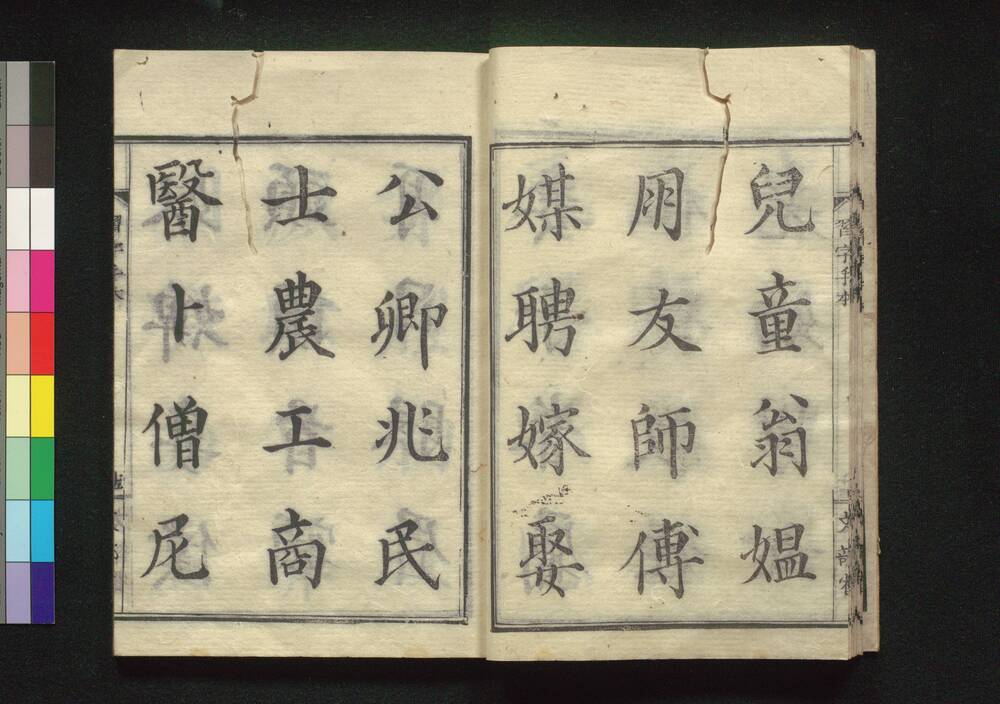 習字手本
文部省
兒童翁媼
朋友師傅
媒聘嫁娶
公卿兆民
士農工商
醫卜僧尼